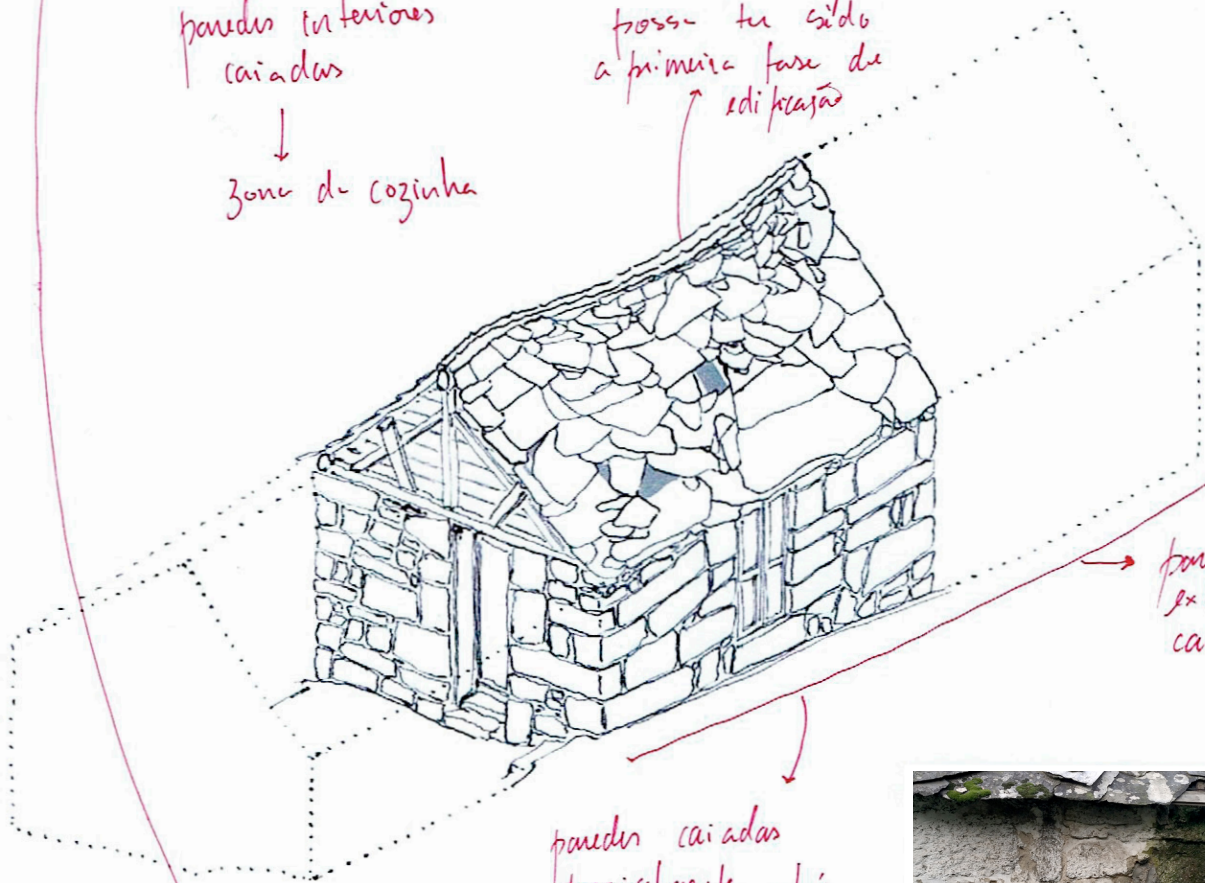 paredes interiores
caiadas
zona da cozinha
possa ter sido
a primeira fase de
edificação
paredes caiadas